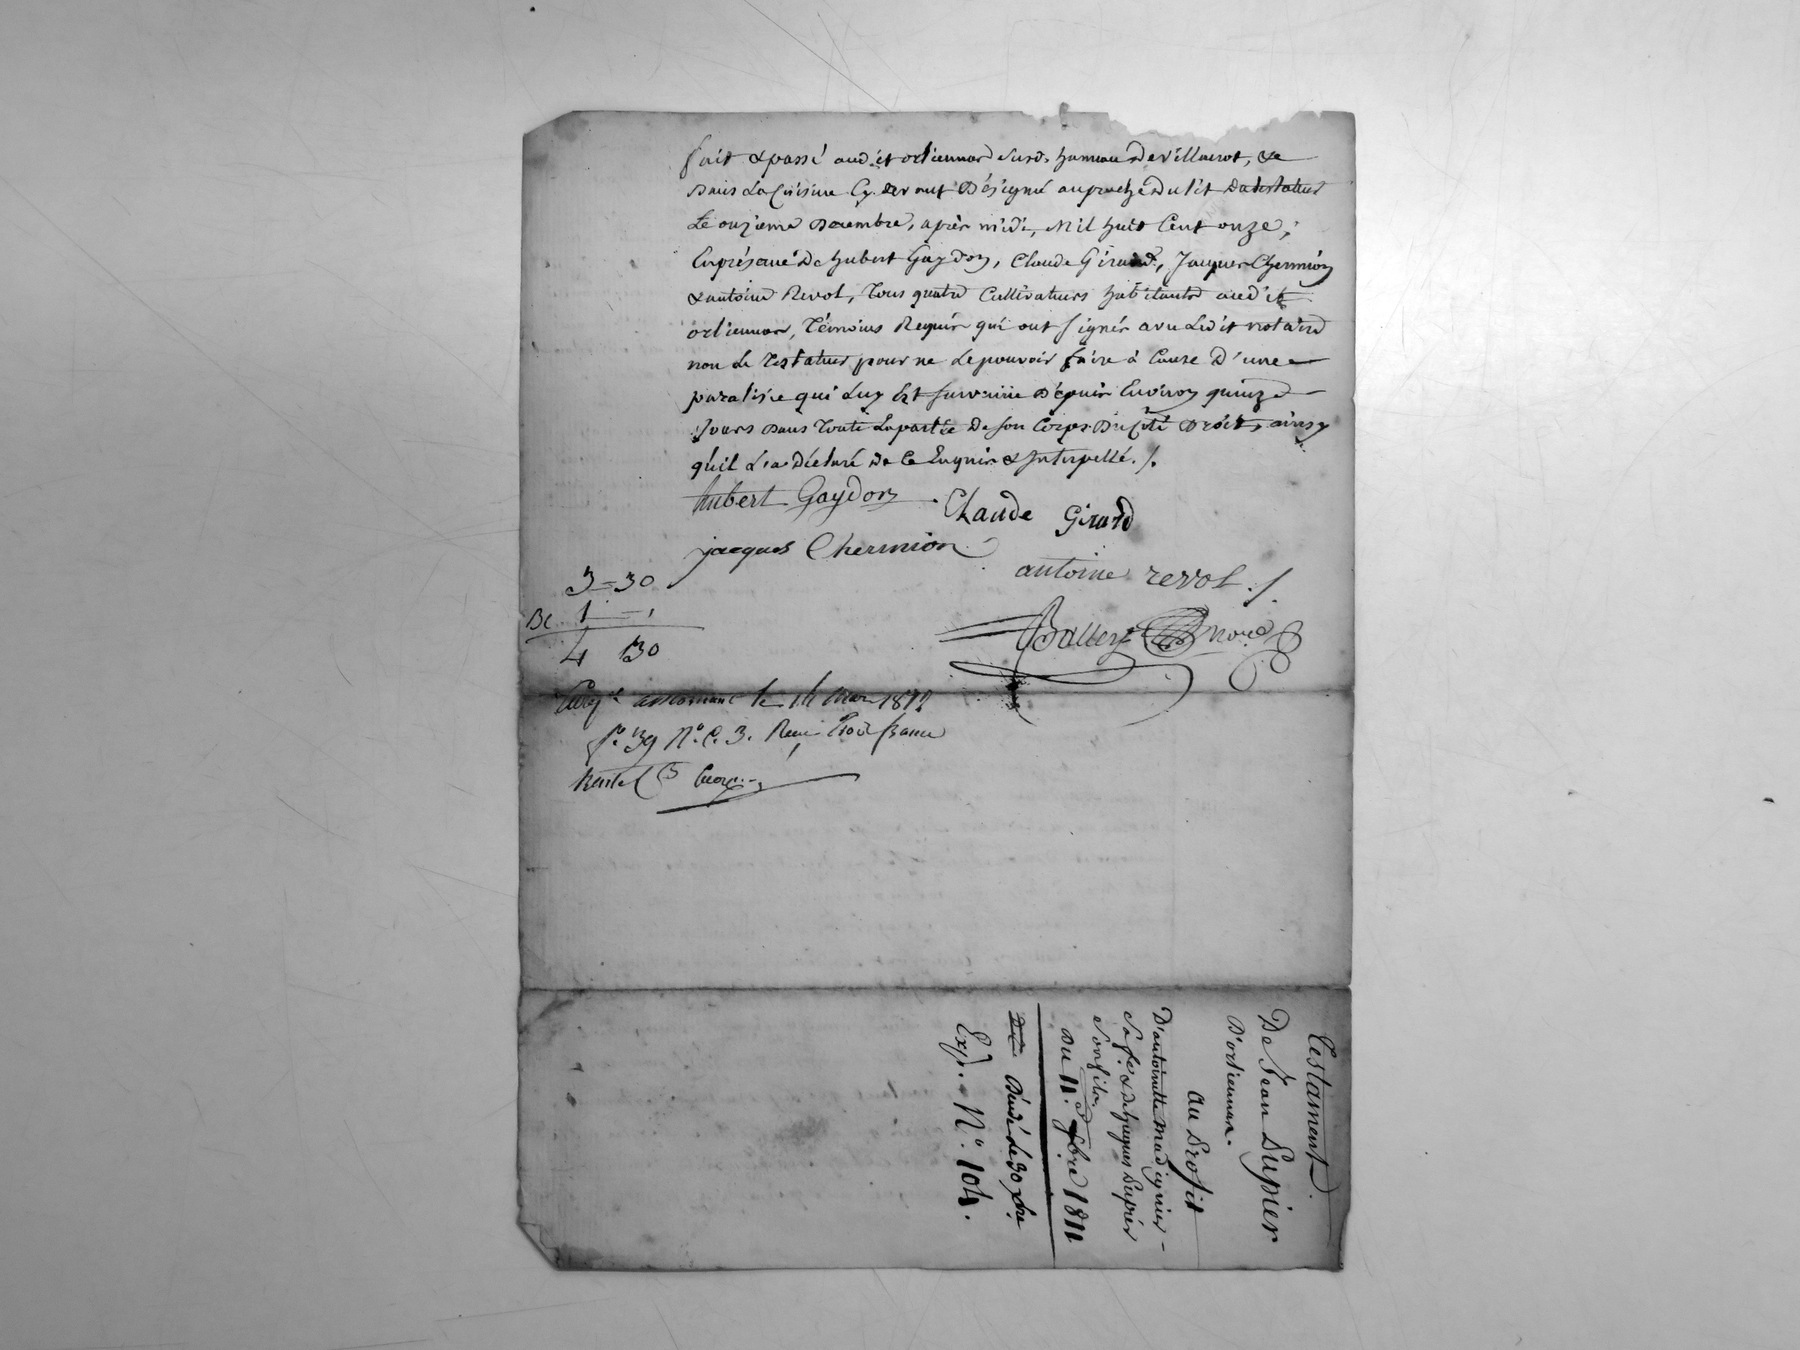 fait & passé audit ordiennas susd. hameau de villaurot, &
Dans La Cuisine Cy. devant Désigné auproche Du lit Du testateur
Le onzieme Décembre, après midi, Mil huit Cent onze,
En présence De hubert Gaydon, Claude Girard, Jacques Chermion
& antoine Revol, Tous quatre Cultivateurs habitants audit
ordiennas, Témoins Requis qui ont signés avec Ledit notaire
non Le Testateur pour ne Le pouvoir faire à Cause D'une
paralisie qui Luy Est survenüe Dépuis Environ quinze
Jours Dans Toute La partie De son Corps Du Côté Droit, ainsy
qu'il L'a Déclaré De Ce Enquis & Interpellé ./.
hubert Gaydon
Claude Girard
jacques Chermion
antoine revol ./.
3 = 30
De 1 =
4 30
Balley nore
Enregt. a Romans le 14 Mars 1812
fo. 39 Ro. C. 3. Recu trois francs
trente
Testament
De Jean Dupier
D'ordiennas.
au Profit
D'antoinette Madignier –
Sa fe. & de hugues Dupier
Son fils,
Du 11. Xbre 1811
No. 104.
Exp.